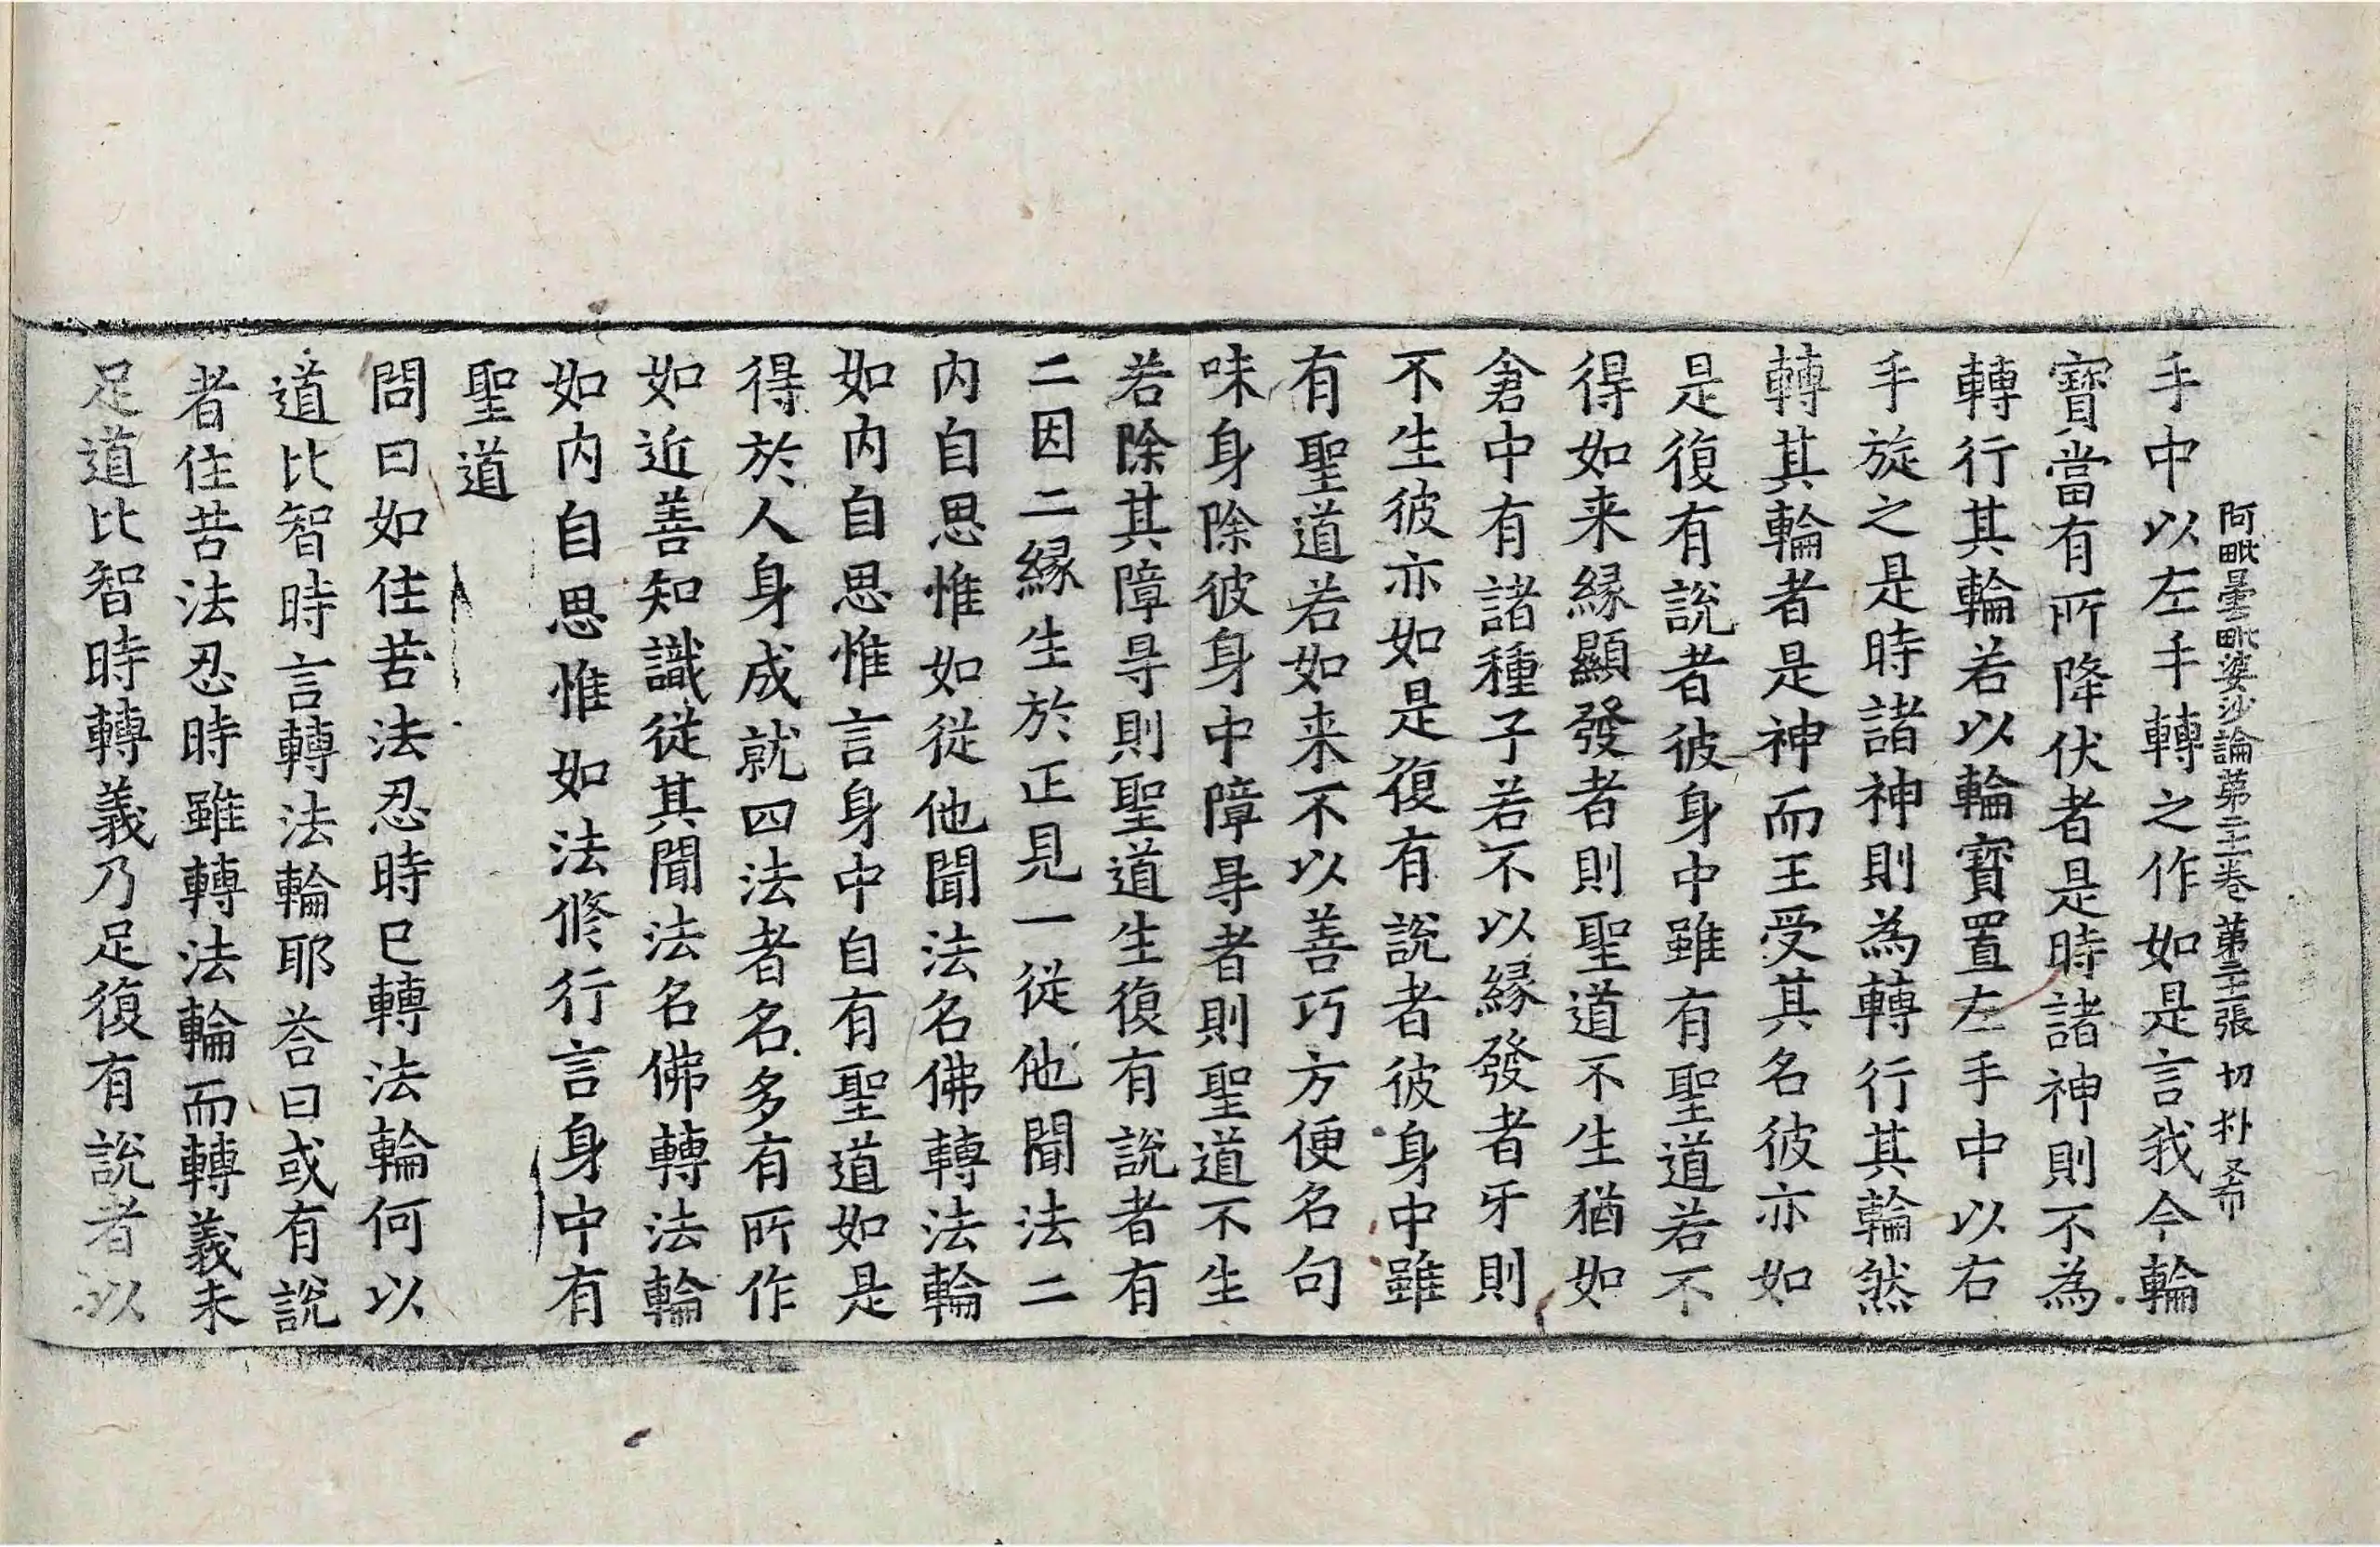 阿毗曇毗婆沙論第二十一卷 第二十三張 切 朴又希
手中以左手轉之作如是言我今輪
寶當有所降伏者是時諸神則不為
轉行其輪若以輪寶置左手中以右
手旋之是時諸神則為轉行其輪然
轉其輪者是神而王受其名彼亦如
是復有說者彼身中雖有聖道若不
得如来緣顯發者則聖道不生猶如
倉中有諸種子若不以緣發者牙則
不生彼亦如是復有說者彼身中雖
有聖道若如来不以善巧方便名句
味身除彼身中障㝵者則聖道不生
若除其障㝵則聖道生復有說者有
二因二緣生於正見一從他聞法二
内自思惟如從他聞法名佛轉法輪
如内自思惟言身中自有聖道如是
得於人身成就四法者名多有所作
如近善知識從其聞法名佛轉法輪
如内自思惟如法修行言身中有
聖道
問曰如住苦法忍時已轉法輪何以
道比智時言轉法輪耶荅曰或有說
者住苦法忍時雖轉法輪而轉義未
足道比智時轉義乃足復有說者以